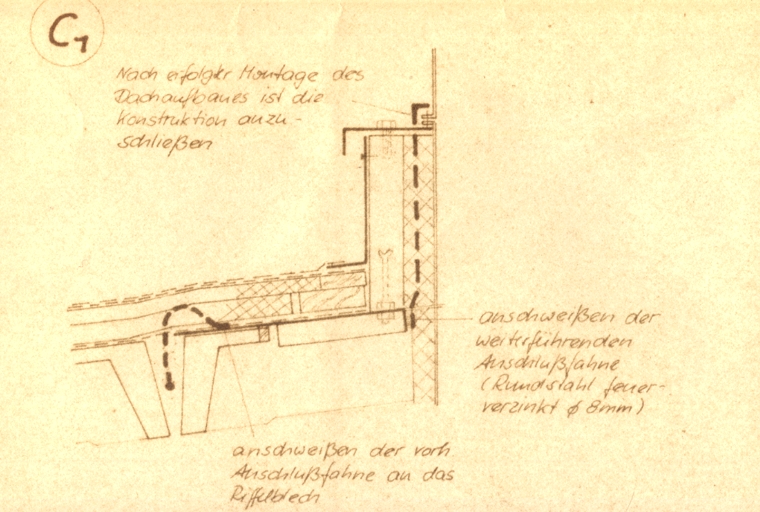 C1
Nach erfolgter Montage des
Dachaufbaues ist die
Konstruktion anzu-
schließen
anschweißen der
weiterführenden
Anschlußfahne
(Rundstahl feuer-
verzinkt ϕ 8mm)
anschweißen der vorh
Anschlußfahne an das
Riffelblech